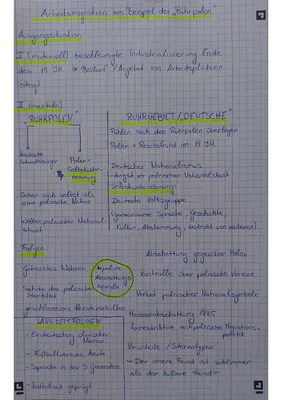 Arbeitsmigration am Beispiel der "Ruhrpolen"
Ausgangssituation
I (materiell) beschleunigte Industrialisierung Ende
des 19. JH. → Bedarf / Angebot von Arbeitsplätzen
steigt
II (mentale)
"RUHRPOLEN"
deutsche
Staatsbürger
Polen
Selbstwahr-
nehmung
sehen sich selbst als
eine polnische Nation
Wollen polnischen National-
staat
RUHRGEBIET / DEUTSCHE
Fühlen sich den Ruhrpolen überlegen
Polen = Reichsfeind im 19. JH.
Deutscher Nationalismus
→ Angst vor polnischem Nationalstaat
Selbstwahrnehmung:
Deutsche Volksgruppe
(gemeinsame Sprache, Geschichte,
Kultur, Abstammung, bedroht von anderen)
Folgen
Getrenntes Wohnen
Schutz der polnischen
Identität
geschlossenes Heiratsverhalten
Abschottungs
spirale
Abschottung gegenüber Polen
Kontrolle über polnische Vereine
Verbot polnischer Nationalsymbole
Massenabschiebung 1885
antipolnische Migrations-
politik
Vorurteile / Stereotypen
"Der innere Feind ist schlimmer
als der äußere Feind"
LANGZEITFOLGEN
- Eindeutschung polnischer
Namen
- Fußballvereine heute
- Sprache in der 3. Generation
- katholisch geprägt